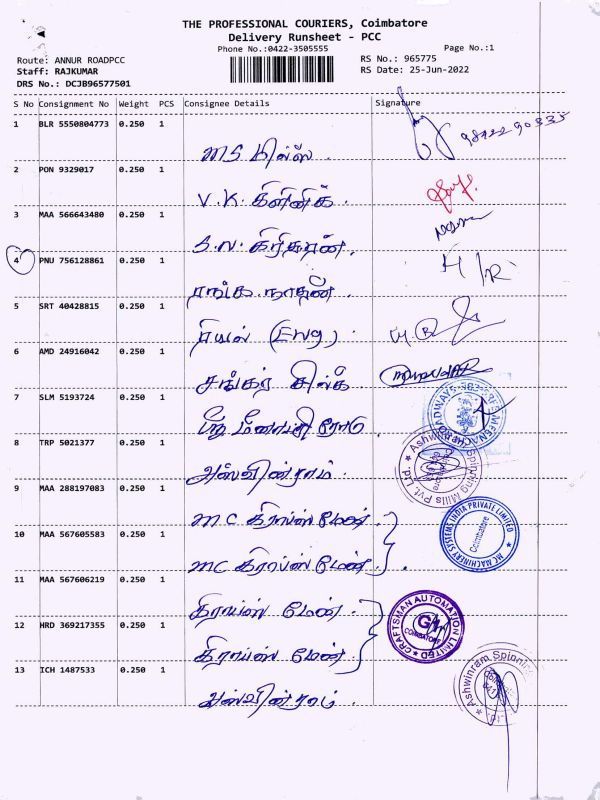 THE PROFESSIONAL COURIERS, Coimbatore
Delivery Runsheet - PCC
Phone No.:0422-3505555
Page No.:1
Route: ANNUR ROADPCC
RS No.: 965775
Staff: RAJKUMAR
RS Date: 25-Jun-2022
DRS No.: DCJB96577501
S No Consignment No Weight PCS Consignee Details Signature
1 BLR 5550804773 0.250 1
MS மில்ஸ்
2 PON 9329017 0.250 1
V.K. கிளினிக்
3 MAA 566643480 0.250 1
S.N. கிரிதரன்
4 PNU 756128861 0.250 1 H/R
ரங்கநாதன்
5 SRT 40428815 0.250 1
ரியல் (Eng)
6 AMD 24916042 0.250 1
சங்கர் சில்க்
7 SLM 5193724 0.250 1
மீனாட்சி ரோடு
8 TRP 5021377 0.250 1
Ashwinram Spinning Mills Pvt. Ltd.
அஸ்வின்ராம்
9 MAA 288197083 0.250 1
MC கிராப்ஸ் மேன்
10 MAA 567605583 0.250 1
MC MACHINERY SYSTEMS INDIA PRIVATE LIMITED
Coimbatore
MC கிராப்ஸ் மேன்
11 MAA 567606219 0.250 1
கிராப்ஸ் மேன்
12 HRD 369217355 0.250 1
CRAFTSMAN AUTOMATION LIMITED
COIMBATORE
கிராப்ஸ் மேன்
13 ICH 1487533 0.250 1
Ashwinram Spinning
அஸ்வின்ராம்